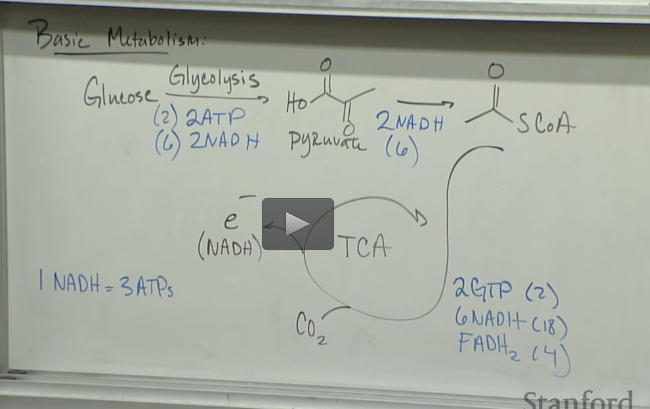 Basic Metabolism:
Glucose
Glycolysis
(2) 2ATP
(6) 2NADH
O
HO
O
pyruvate
2NADH
(6)
O
SCoA
e⁻
(NADH)
TCA
1 NADH = 3ATPs
CO₂
2GTP (2)
6NADH (18)
FADH₂ (4)
Stanford